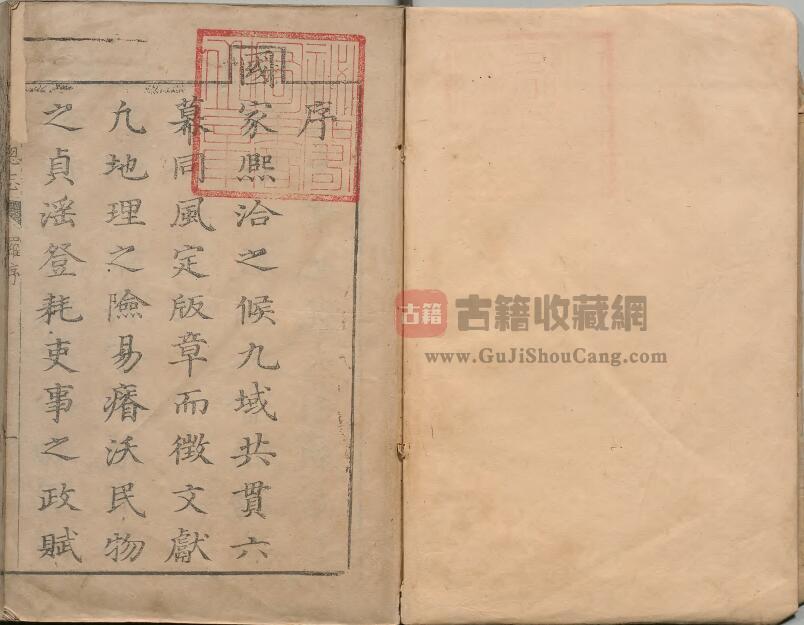 序
國家熈洽之候九域共貫六
幕同風定版章而徴文獻
凢地理之險易瘠沃民物
之貞滛登耗吏事之政賦
羅序
古籍
古籍收藏網
www.GuJiShouCang.com